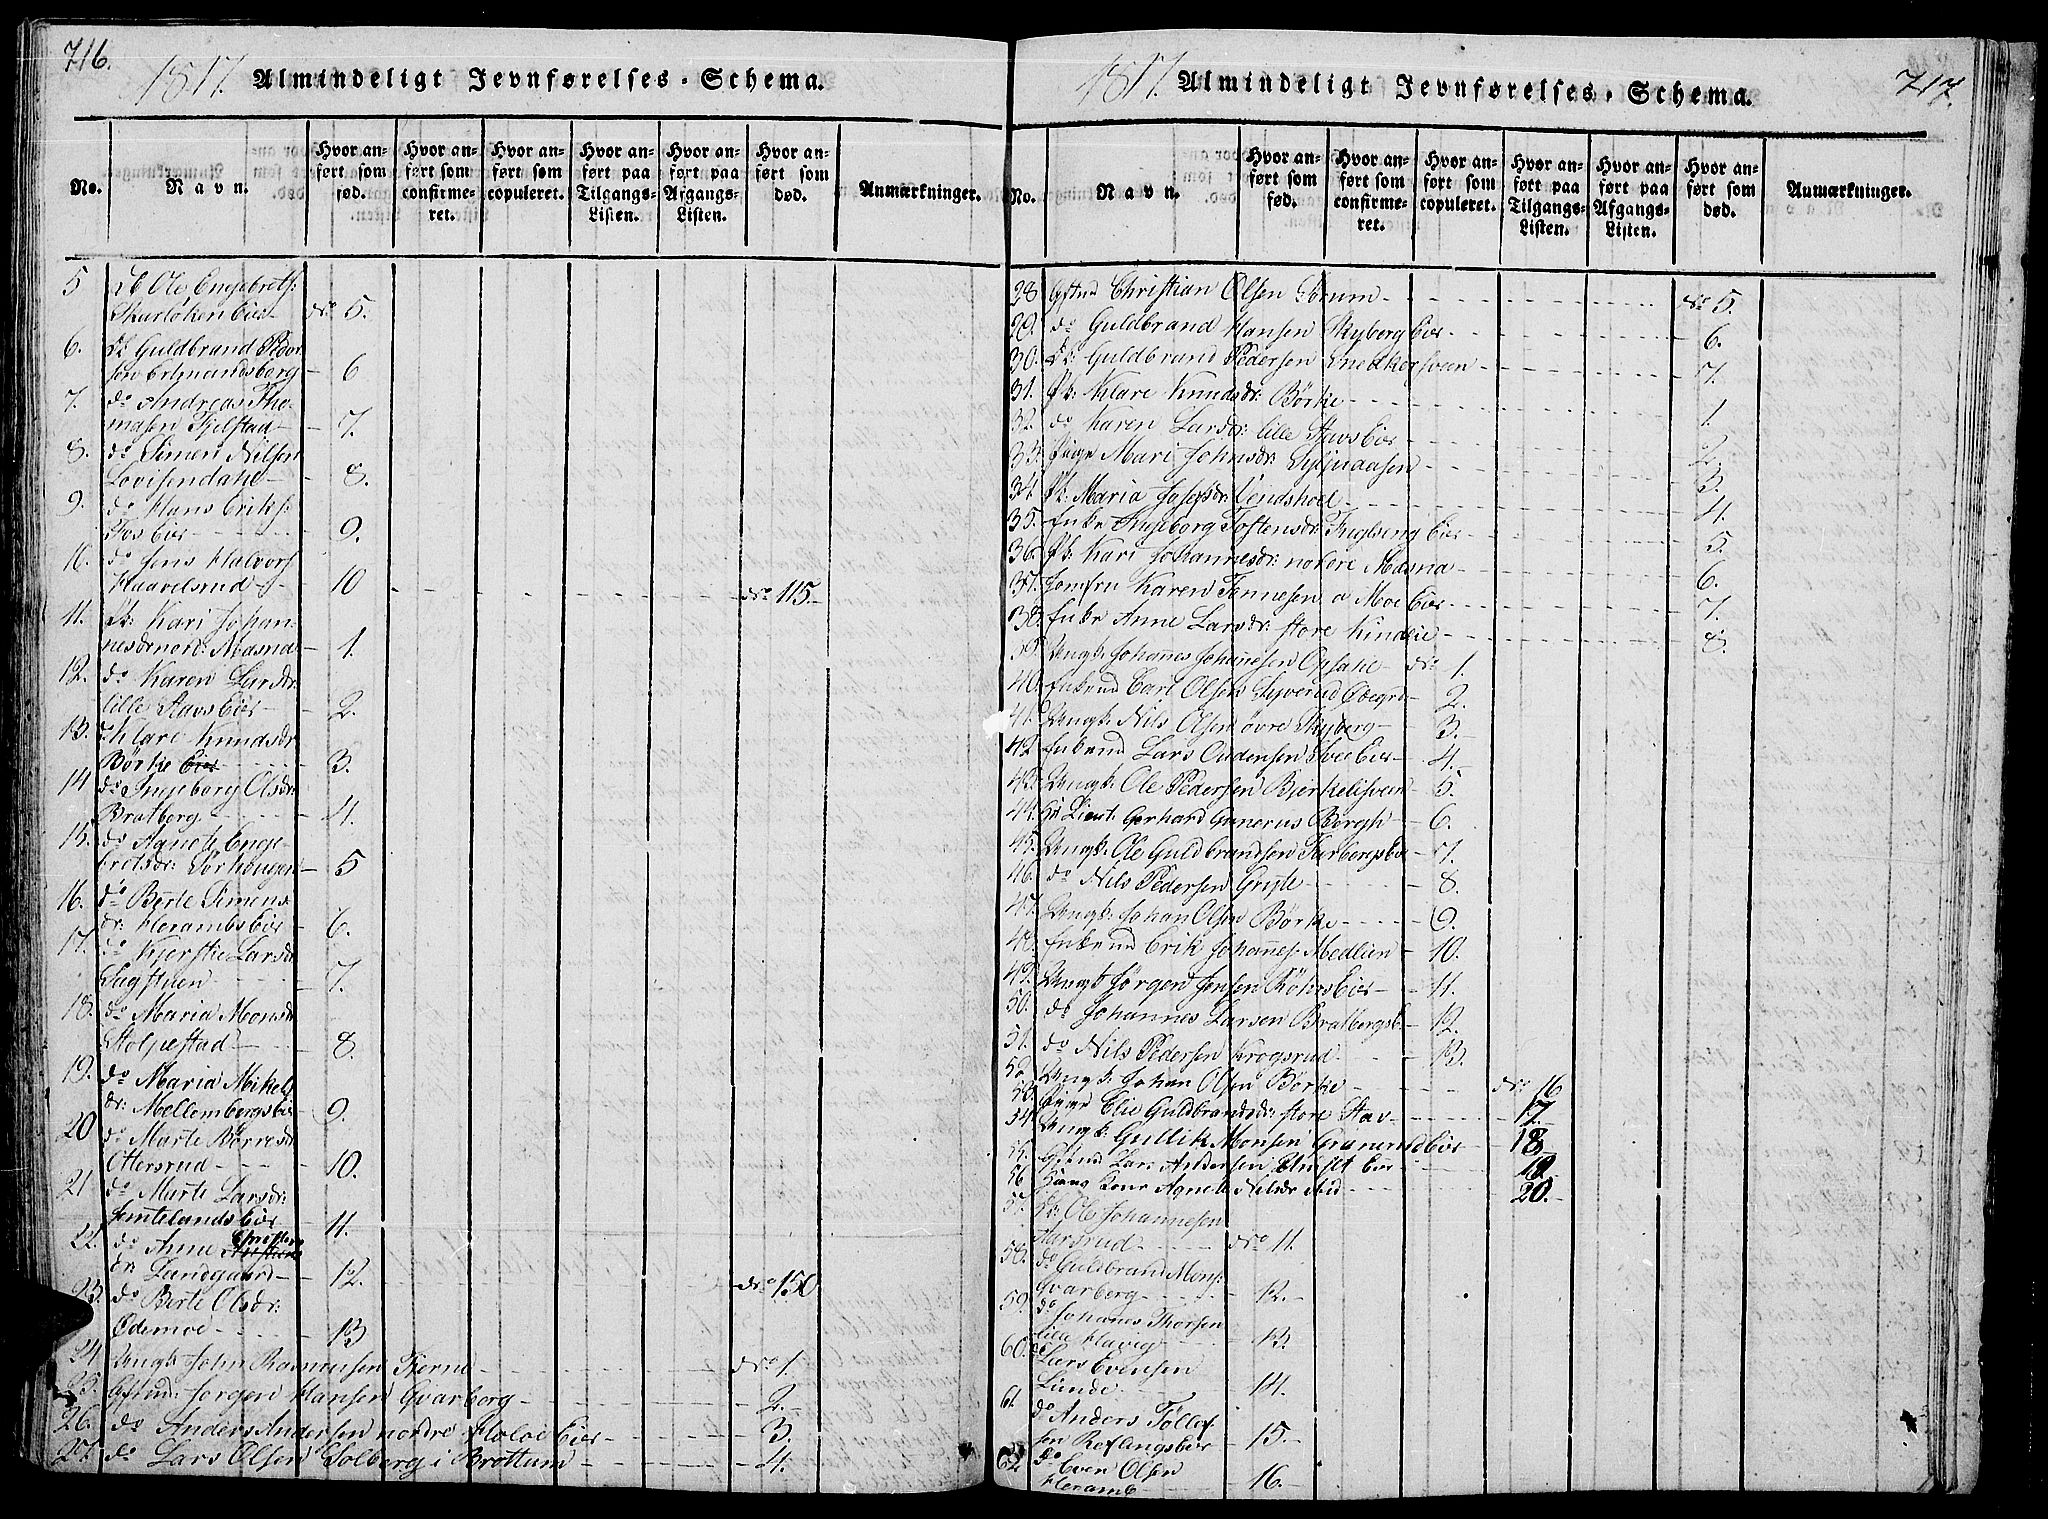 716.
1817. Almindeligt Jevnførelses-Schema.
No.
Navn.
Hvor an-
ført som
fød.
Hvor an-
ført som
confirme-
ret.
Hvor an-
ført som
copuleret.
Hvor an-
ført paa
Tilgangs-
Listen.
Hvor an-
ført paa
Afgangs-
Listen.
Hvor an-
ført som
død.
Anmærkninger.
5 Ole Engebrets:
Skurløken Eier No 5.
6. Guldbrand Peder
sen Erlmandsberg 6
7. do Andreas Tho-
masen Fjelstad 7.
8. do Simen Nilsen
Lovisendahl 8.
9. do Hans Eriks:
Fos Eier 9.
10. do Jens Halvors
Haavelsrud 10 No 115.
11. Pk: Kari Johan-
nesdr nord: Mæsna 1.
12. do Karen Larsdr:
lille Stavs Eier 2.
13. do Klare Knudsdr
Börke Eier 3.
14 do Ingeborg Olsdr:
Bratberg 4.
15. do Agnete Enge-
bretsdr: Sørhougen 5
16. do Berte Simens-
dr: Herambs Eier 6.
17. do Kjerstie Larsdr
Sagstuen 7.
18. do Maria Monsdr
Stolpestad 8.
19. do Maria Mikels
dr: Mellembergs Eier 9.
20 do Marte Børresdr
Ottersrud 10.
21 do Marte Larsdr:
Jemtelands Eier 11.
22. do Anne Christens
dr Landgaard 12. No 150
23. do Berte Olsdr:
Ødemoe 13
24 Ungk: John Rasmusen Tjerne No 1.
25. Gftmd: Jørgen Hansen Gvarberg 2.
26. do Anders Andersen nordre Holoe Eier 3.
27. do Lars Olsen Solberg i Brøttum 4.
717.
1817. Almindeligt Jevnførelses-Schema.
No.
Navn.
Hvor an-
ført som
fød.
Hvor an-
ført som
confirme-
ret.
Hvor an-
ført som
copuleret.
Hvor an-
ført paa
Tilgangs-
Listen.
Hvor an-
ført paa
Afgangs-
Listen.
Hvor an-
ført som
død.
Anmærkninger.
28 Gftmd Christian Olsen Sørum No 5.
29. do Guldbrand Hansen Skyberg Eier 6.
30. Guldbrand Pedersen Snedkersveen 7.
31. Pk: Klare Knudsdr: Börke 1.
32. do Karen Larsdr: lille Stavs Eier 2.
33. Pige Mari Johnsdr: Syljuaasen 3.
34. Pk: Maria Josefsdr: Vendshoel 4.
35. Enke Ingeborg Tostensdr: Fuglseng Eier 5.
36. Pk: Kari Johannesdr: nordre Mæsna 6.
37. Jomfru Karen Tønnesen a Moe Eier 7.
38. Enke Anne Larsdr: store Kindlie 8.
39 Ungk: Johannes Johannesen Opsahl No 1.
40. Enkemd Carl Olsen Syverud Ødegrd 2.
41. Ungk: Nils Olsen övre Skyberg 3.
42 Enkemd Lars Oudensen Svee Eier 4.
43. Ungk: Ole Pedersen Bjerkelisveen 5.
44. Hr Lieut: Gerhard Gunerus Bergh 6.
45. Ungk: Ole Guldbrandsen Furbergs Eie 7.
46. do Nils Pedersen Gryte 8.
47. Ungk: Johan Olsen Börke 9.
48. Enkemd Erik Johannes: Medlien 10.
49. Ungk Jörgen Jensen Röhrs Eier 11.
50. do Johannes Larsen Bratbergs E. 12.
51. do Nils Pedersen Krogsrud 13.
52 Ungk: Johan Olsen Börke No 16
53. Pige Elie Guldbrandsdr: store Stav 17.
54. Ungk: Gullik Monsen Granerud Eier 18
55. Gftmd Lars Andersen Eier 19.
56 Kone Agnete Nilsdr 20.
57. Ole Johannesen
Aarsrud No 11.
58. do Guldbrand Mons:
Gvarberg 12.
59. do Johannes Thorsen
Havig 13.
60. do Lars Evensen
Lunde 14.
61 do Anders Tollef
sen Reflings Eier 15.
62 do Even Olsen
Heramb 16.